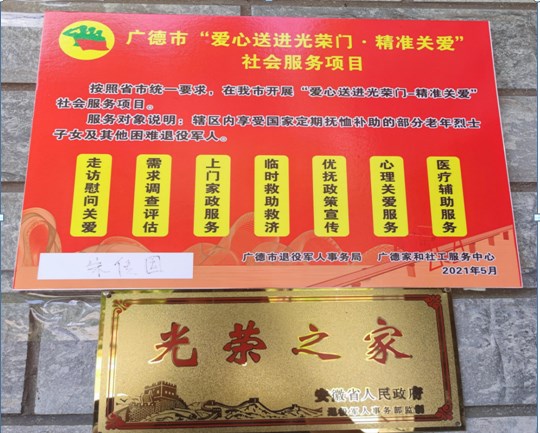 广德市“爱心送进光荣门·精准关爱”
社会服务项目
按照省市统一要求，在我市开展“爱心送进光荣门-精准关爱”
社会服务项目。
服务对象说明：辖区内享受国家定期抚恤补助的部分老年烈士
子女及其他困难退役军人。
走访慰问关爱
需求调查评估
上门家政服务
临时救助救济
优抚政策宣传
心理关爱服务
医疗辅助服务
广德市退役军人事务局 广德家和社工服务中心
2021年5月
光荣之家
安徽省人民政府
退役军人事务部监制